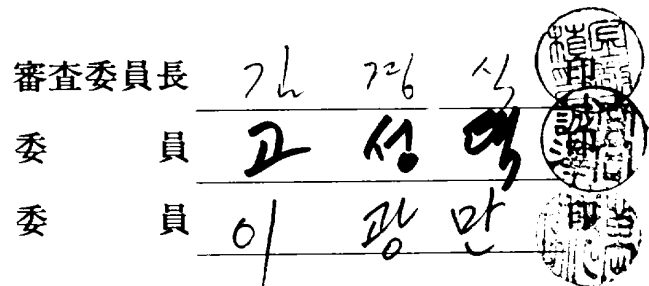 審査委員長 김 경 식 印
委 員 고 성 택 印
委 員 이 광 만 印